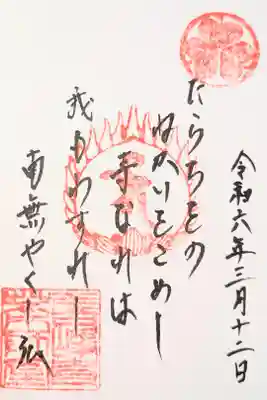 令和六年三月十二日
たらちをの
ねかいをこめし
寺なれは
我もわすれし
南無やくし